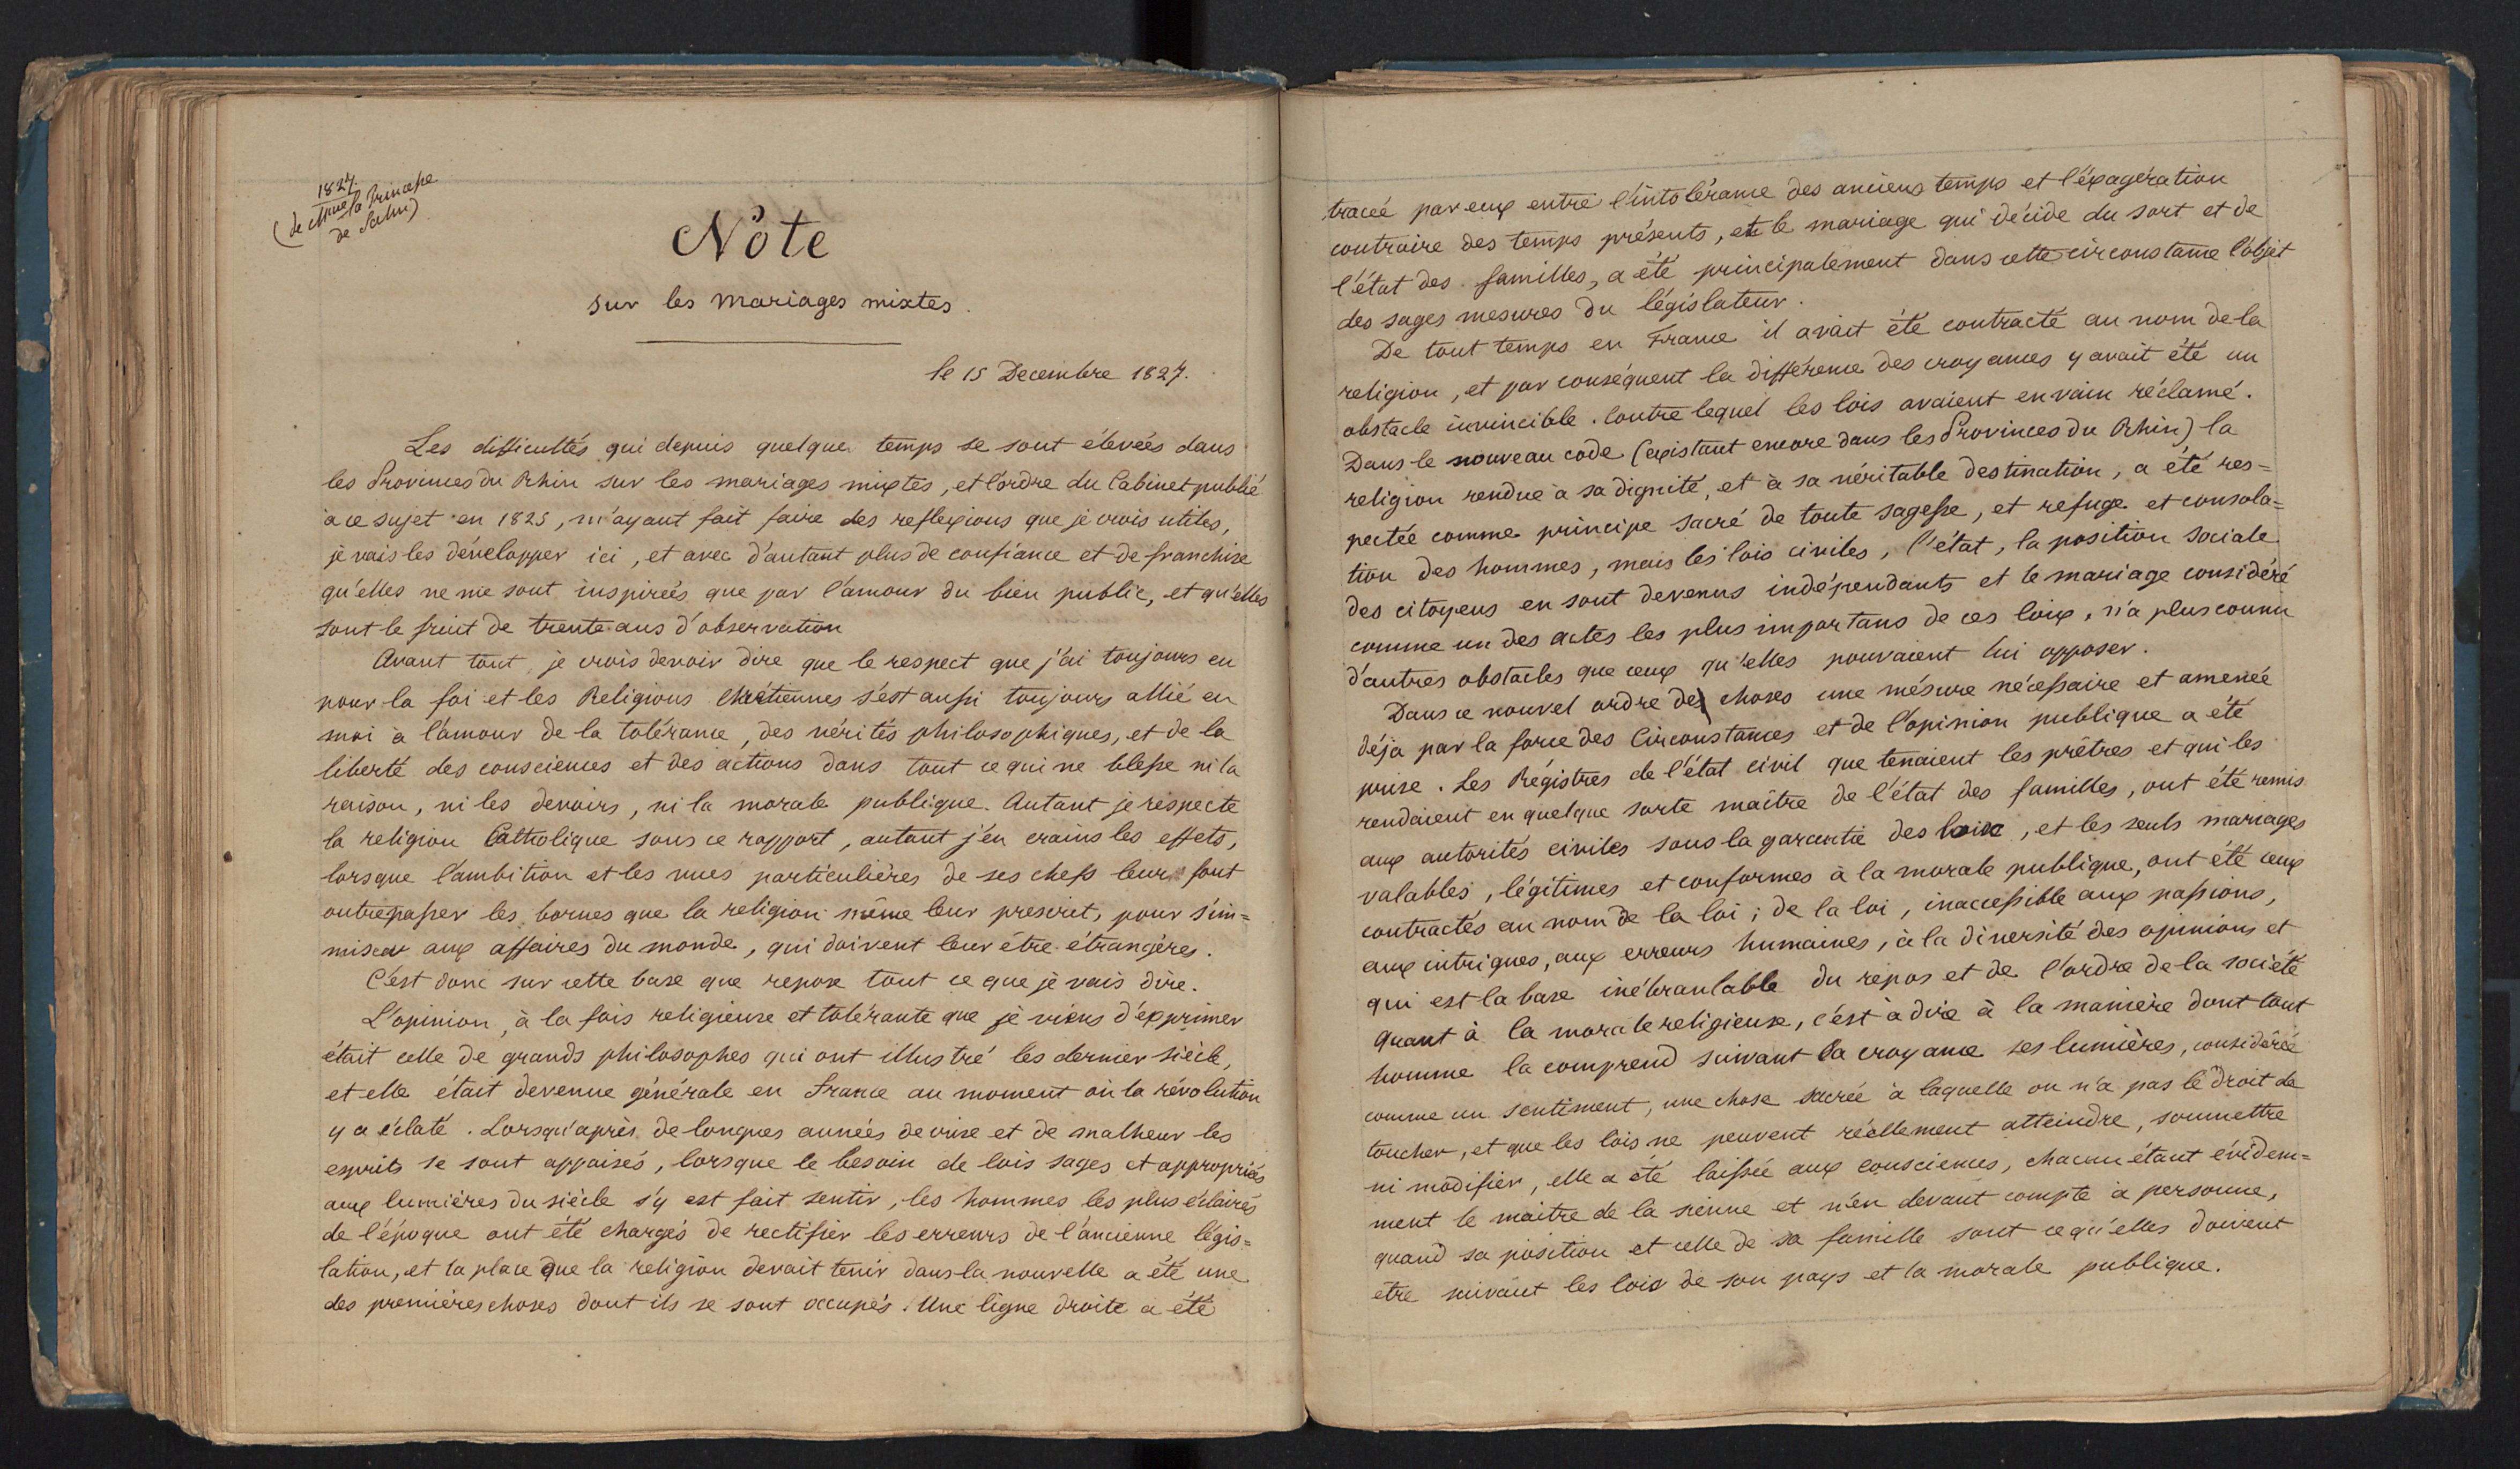 1827.
(de Mme la Princesse
de Salm)
Note
sur les mariages mixtes.
le 15 Decembre 1827.
Les difficultés qui depuis quelque temps se sont élevées dans
les Provinces du Rhin sur les mariages mixtes, et l'ordre du Cabinet publié
à ce sujet en 1825, m'ayant fait faire des reflexions que je crois utiles,
je vais les développer ici, et avec d'autant plus de confiance et de franchise
qu'elles ne me sont inspirées que par l'amour du bien public, et qu'elles
sont le fruit de trente ans d'observation
Avant tout, je crois devoir dire que le respect que j'ai toujours eu
pour la foi et les Religions Chrétiennes s'est aussi toujours allié en
moi à l'amour de la tolérance, des vérités philosophiques, et de la
liberté des consciences et des actions dans tout ce qui ne blesse ni la
raison, ni les devoirs, ni la morale publique. Autant je respecte
la religion Catholique sous ce rapport, autant j'en crains les effets,
lorsque l'ambition et les vues particulières de ses chefs leur font
outrepasser les bornes que la religion même leur prescrit, pour s'im=
miscer aux affaires du monde, qui doivent leur être étrangères.
C'est donc sur cette base que repose tout ce que je vais dire.
L'opinion, à la fois religieuse et tolérante que je viens d'exprimer
était celle de grands philosophes qui ont illustré les dernier siècle,
et elle était devenue générale en France au moment où la révolution
y a éclaté. Lorsqu'après de longues années de crise et de malheur les
esprits se sont appaisés, lorsque le besoin de lois sages et appropriés
aux lumières du siècle s'y est fait sentir, les hommes les plus éclairés
de l'époque ont été chargés de rectifier les erreurs de l'ancienne légis=
lation, et la place que la religion devait tenir dans la nouvelle a été une
des premières choses dont ils se sont occupés. Une ligne droite a été
tracée par eux entre l'intolérance des anciens temps et l'éxagération
contraire des temps présents, et le mariage qui décide du sort et de
l'état des familles, a été principalement dans cette circonstance l'objet
des sages mesures du législateur.
De tout temps en France il avait été contracté au nom de la
religion, et par conséquent la différence des croyances y avait été un
obstacle invincible. Contre lequel les lois avaient en vain réclamé.
Dans le nouveau code (existant encore dans les Provinces du Rhin) la
religion rendue à sa dignité, et à sa véritable destination, a été res=
pectée comme principe sacré de toute sagesse, et refuge et consola=
tion des hommes, mais les lois civiles, l'état, la position sociale
des citoyens en sont devenus indépendants et le mariage considéré
comme un des actes les plus importans de ces loix, n'a plus connu
d'autres obstacles que ceux qu'elles pouvaient lui opposer.
Dans ce nouvel ordre des choses une mésure nécessaire et amenée
déja par la force des Circonstances et de l'opinion publique a été
prise. Les Régistres de l'état civil que tenaient les prêtres et qui les
rendaient en quelque sorte maître de l'état des familles, ont été remis
aux autorités civiles sous la garantie des loix, et les seuls mariages
valables, légitimes et conformes à la morale publique, ont été ceux
contractés au nom de la loi; de la loi, inaccessible aux passions,
aux intrigues, aux erreurs humaines, à la diversité des opinions et
qui est la base inébranlable du repos et de l'ordre de la société
Quant à la morale religieuse, c'est à dire à la manière dont tout
homme la comprend suivant sa croyance ses lumières, considérée
comme un sentiment, une chose sacrée à laquelle on n'a pas le droit de
toucher, et que les lois ne peuvent réellement atteindre, soumettre
ni modifier, elle a été laissée aux consciences, chacun étant évidem=
ment le maitre de la sienne et n'en devant compte à personne,
quand sa position et celle de sa famille sont ce qu'elles doivent
être suivant les lois de son pays et la morale publique.